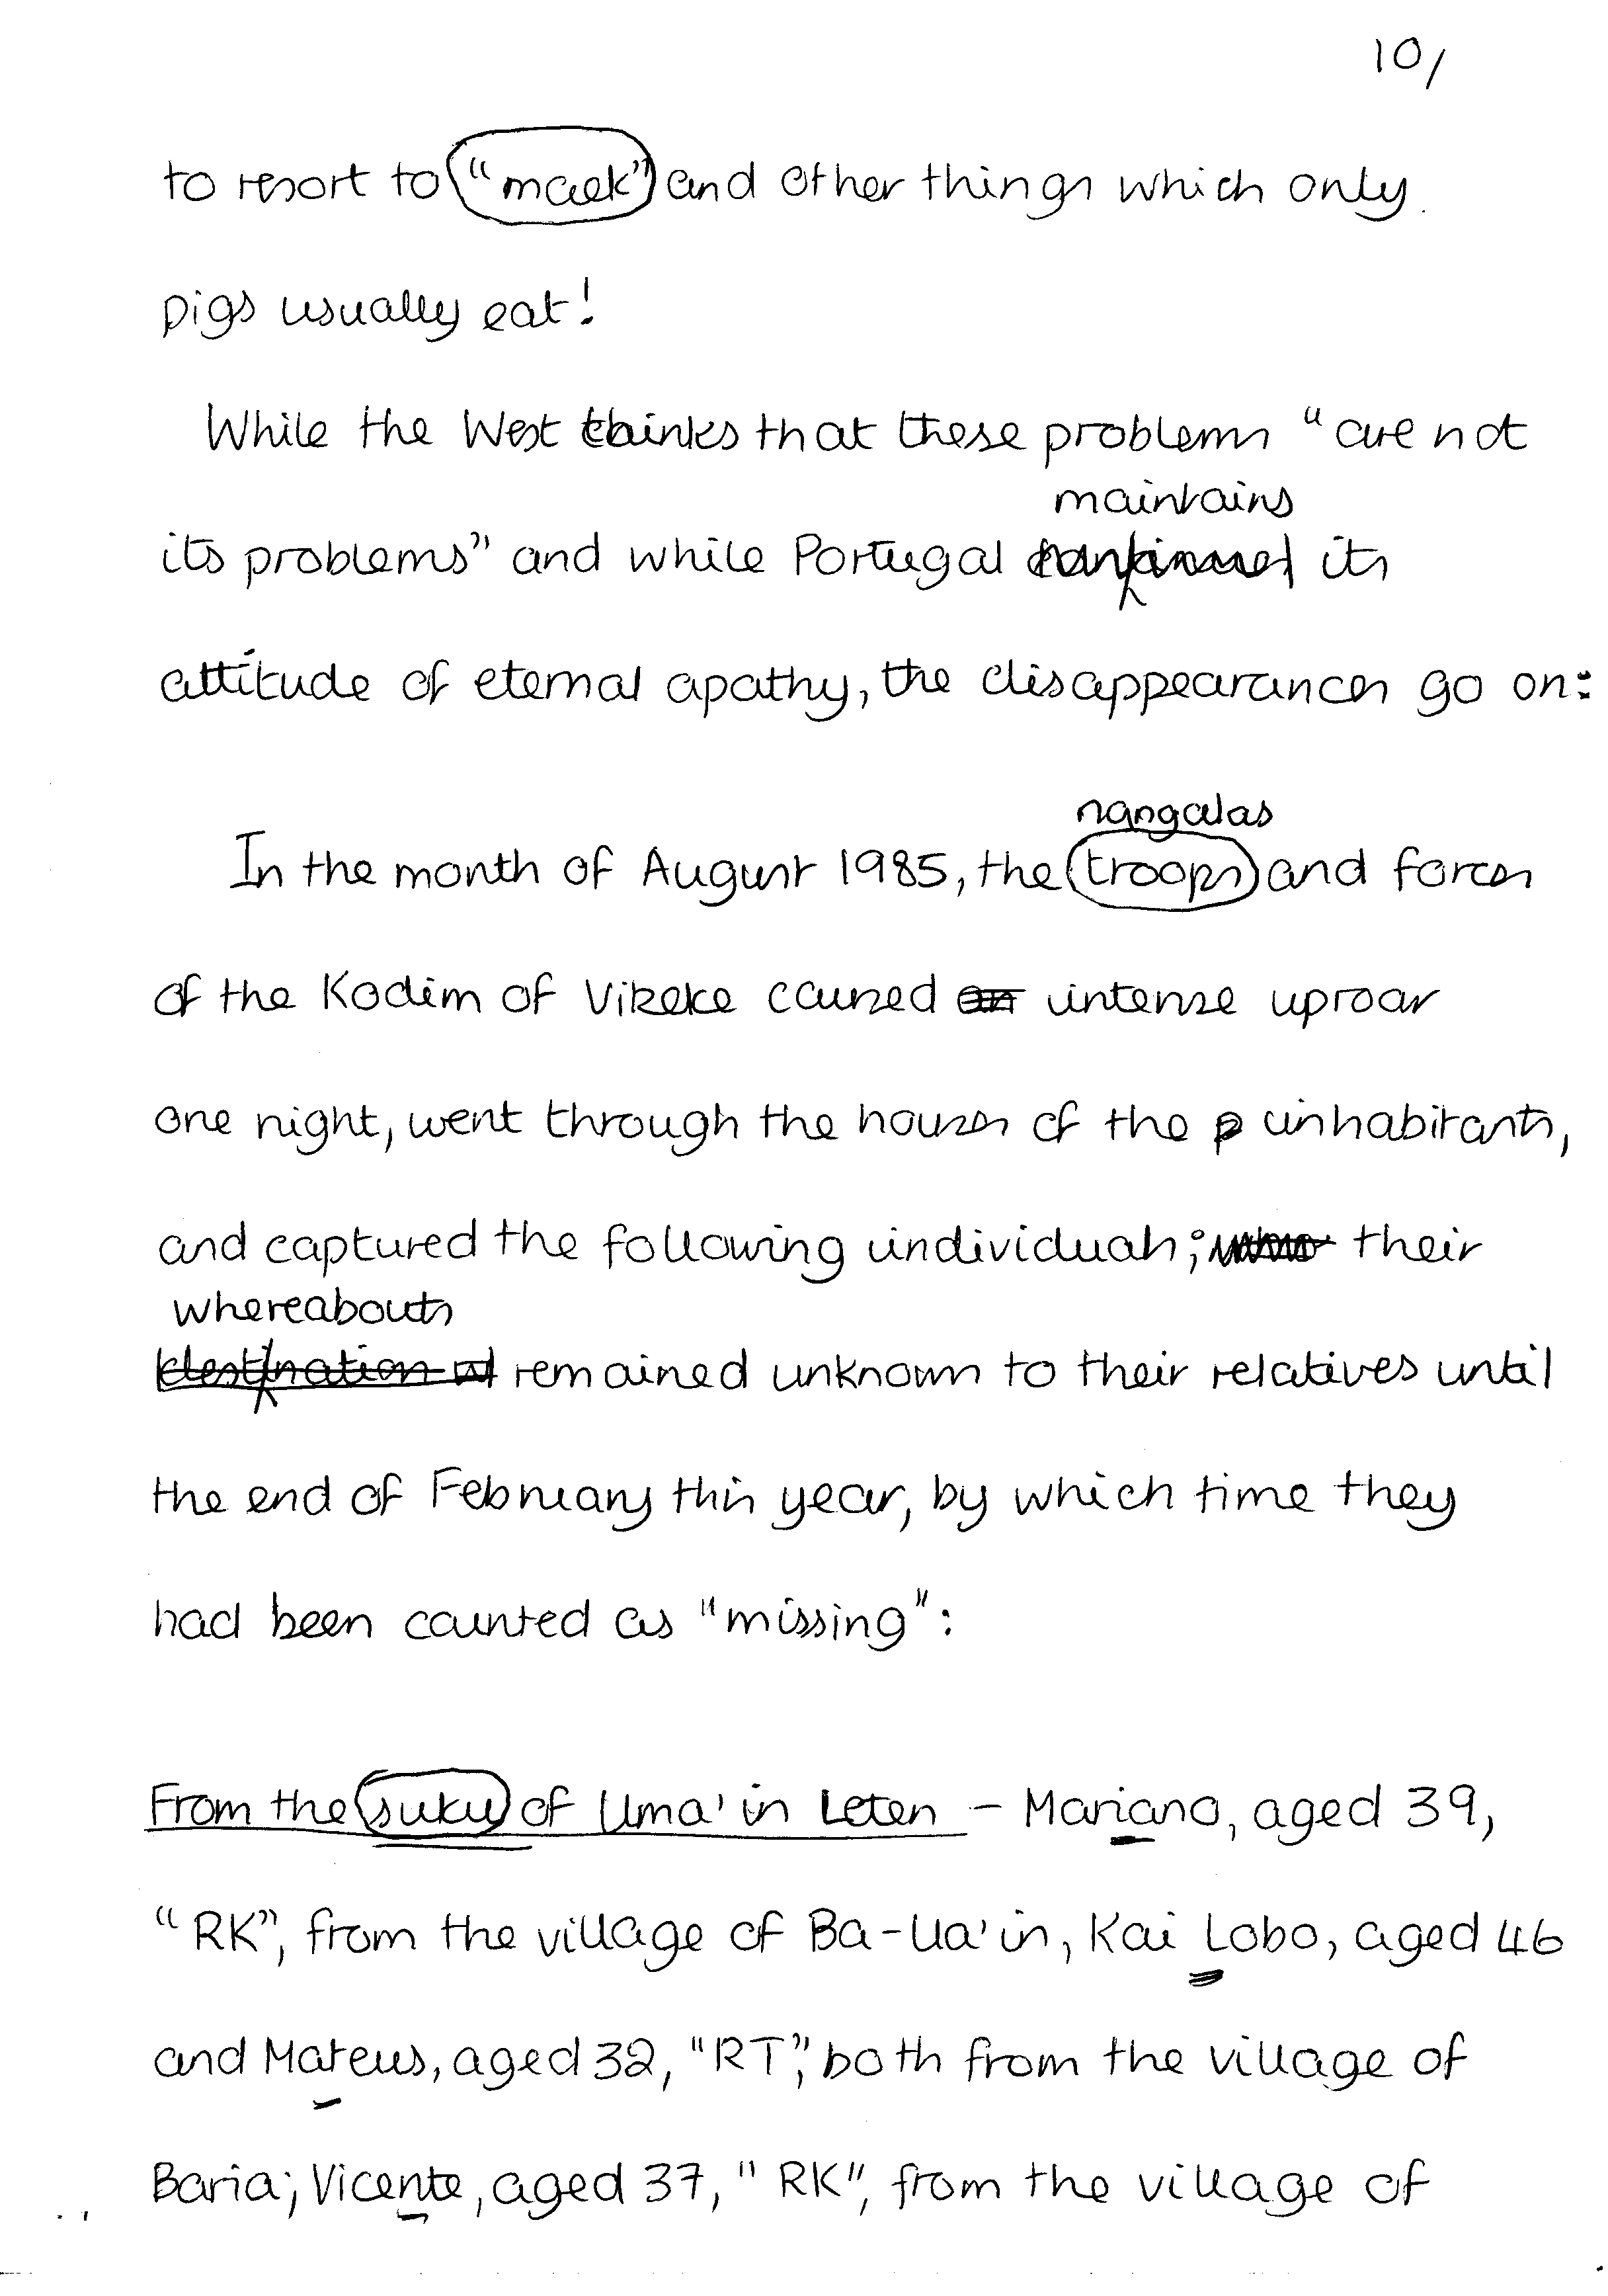 10/
to resort to "maek" and other things which only
pigs usually eat!
While the West thinks that these problems "are not
maintains
its problems" and while Portugal its
attitude of eternal apathy, the disappearances go on:
nangalas
In the month of August 1985, the troops and forces
of the Kodim of Vikeke caused an intense uproar
one night, went through the houses of the p inhabitants,
and captured the following individuals; who their
whereabouts
destination w remained unknown to their relatives until
the end of February this year, by which time they
had been counted as "missing":
From the suku of Uma' in Leten – Mariano, aged 39,
"RK", from the village of Ba-Ua'in, Kai Lobo, aged 46
and Mateus, aged 32, "RT", both from the village of
Baria; Vicente, aged 37, "RK", from the village of